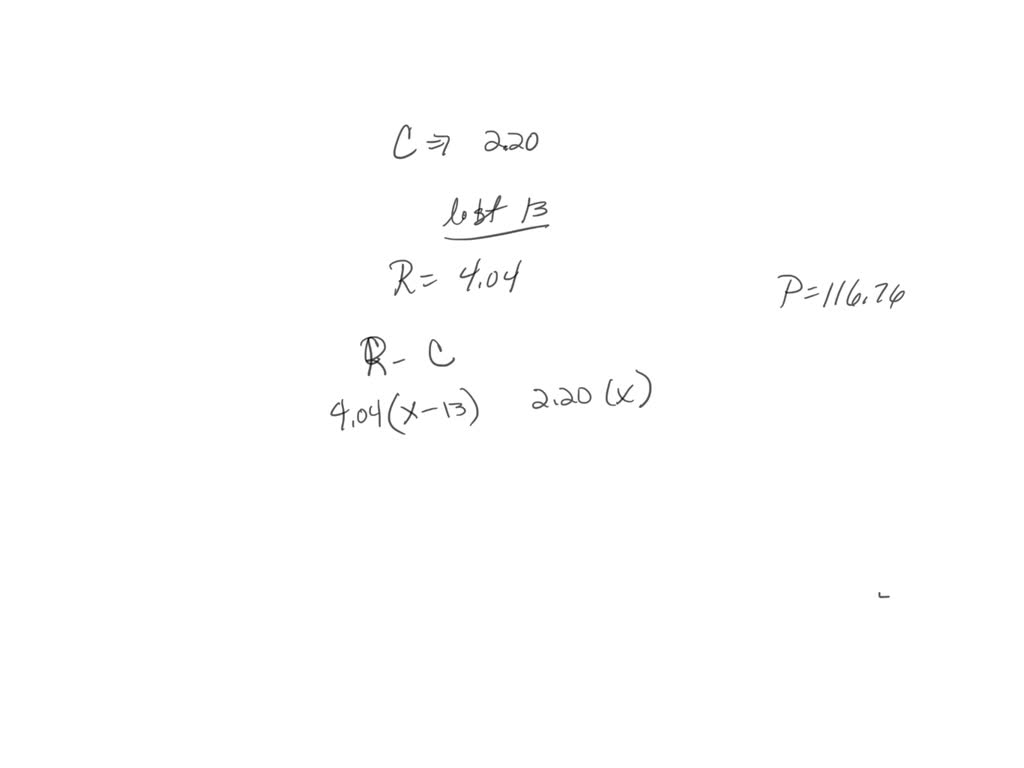 C ⇒ 2.20
lost 13
R = 4.04
P = 116.76
R - C
4.04(x-13) 2.20(x)